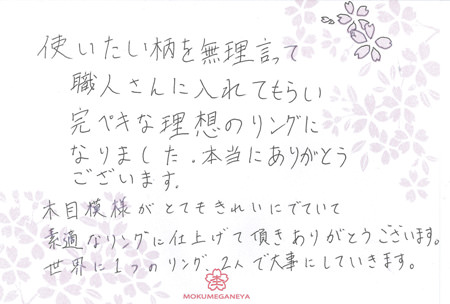 使いたい柄を無理言って
職人さんに入れてもらい
完ペキな理想のリングに
なりました。本当にありがとう
ございます。
木目模様がとてもきれいにでていて
素適なリングに仕上げて頂きありがとうございます。
世界に1つのリング、2人で大事にしていきます。
MOKUMEGANEYA